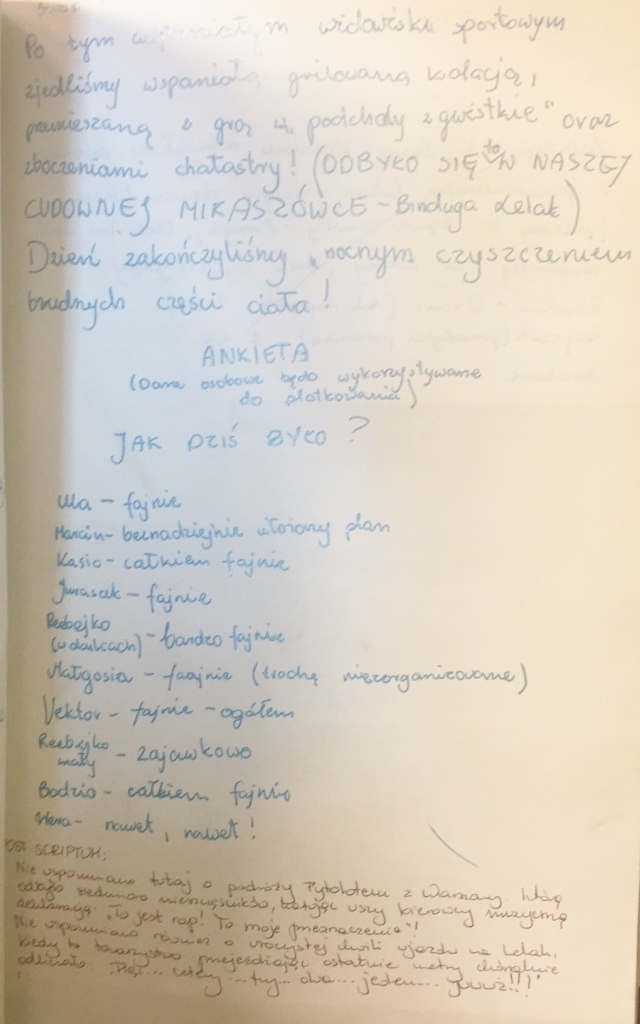 Po tym wspaniałym widowisku sportowym
zjedliśmy wspaniałą grilowaną kolację,
przemieszaną z grą w "podchody z gwistkie" oraz
zboczeniami chałastry! (ODBYŁO SIĘ to W NASZEJ
CUDOWNEJ MIKASZÓWCE - Binduga Lelak)
Dzień zakończyliśmy nocnym czyszczeniem
brudnych części ciała!
ANKIETA
(Dane osobowe będą wykorzystywane
do plotkowania)
JAK DZIŚ BYŁO?
Ula - fajnie
Marcin - beznadziejnie ułożony plan
Kasia - całkiem fajnie
Jurasek - fajnie
(w daszkach) - bardzo fajnie
Małgosia - faajnie (trochę niezorganizowane)
Vektor - fajnie - ogółem
mały - zajawkowo
Bodzio - całkiem fajnie
Wera - nawet, nawet!
POST SCRIPTUM:
Nie wspomniano tutaj o podróży z Warszawy, którą
odbyło siedmioro nieszczęśników, katując uszy kierowcy muzyczną
deklaracją: "To jest rap! To moje przeznaczenie"!
Nie wspomniano również o uroczystej chwili wjazdu na Lelak,
kiedy to towarzystwo przejeżdżając ostatnie metry chóralnie
odliczało: "Pięć... cztery... trzy... dwa... jeden...